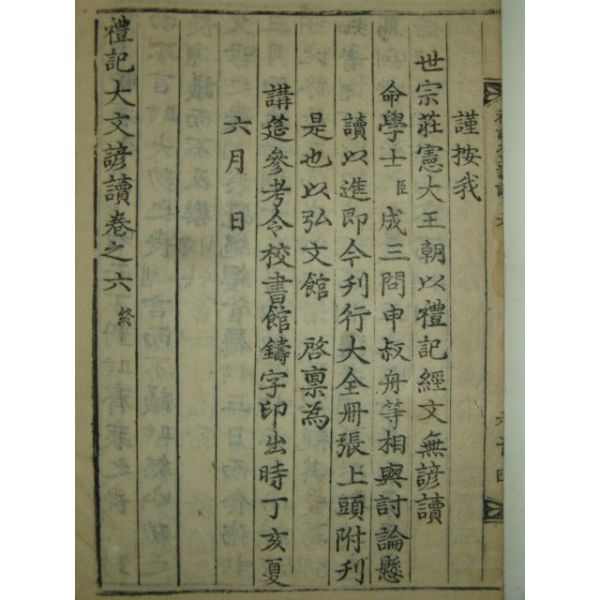 謹按我
世宗莊憲大王朝以禮記經文無諺讀
命學士臣成三問申叔舟等相與討論懸
讀以進即今刊行大全冊張上頭附刊
是也以弘文館 啓稟為
講筵參考令校書館鑄字印出時丁亥夏
六月日
禮記大文諺讀卷之六 終